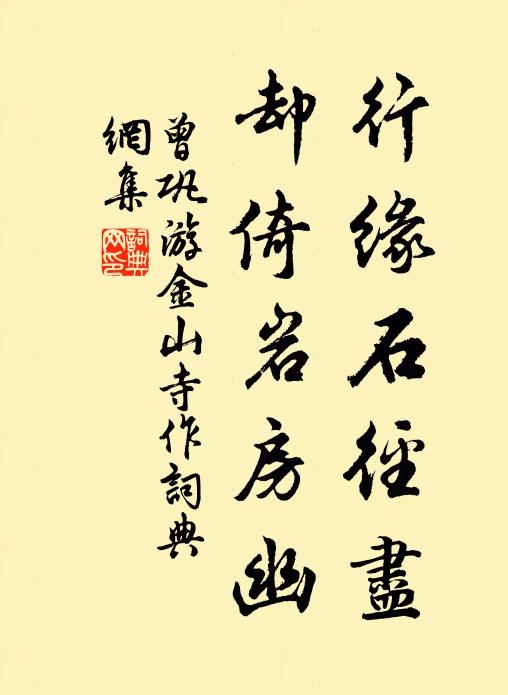 行緣石徑盡
却倚岩房幽
曾巩游金山寺作詞典
網集
詞典
网印